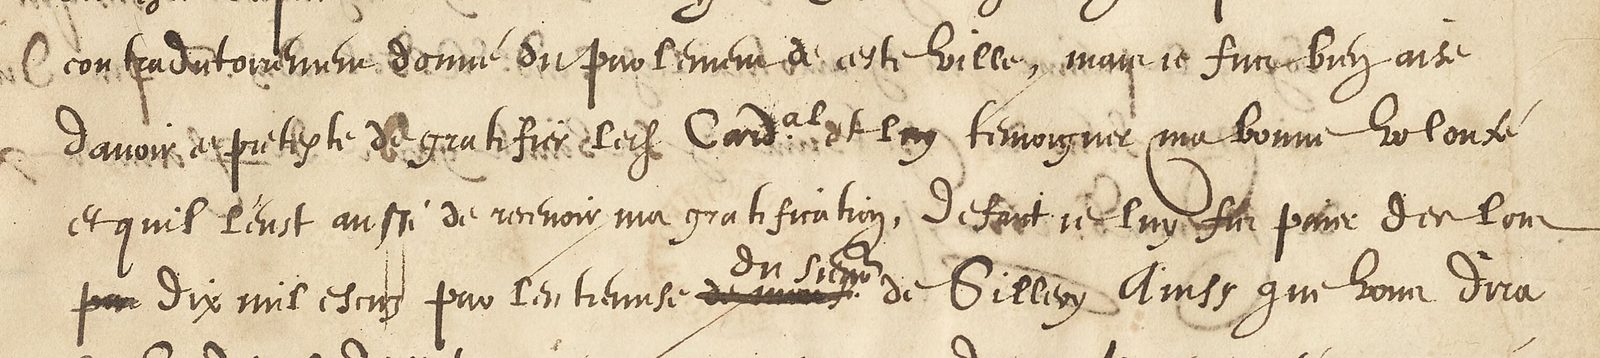 contradictoirement donné du parlement de ceste ville, mais ie fus bien aise
davoir ce pretexte de gratifier led. Card.al et luy temoigner ma bonne volonté
et quil leust aussi de recevoir ma gratification, De fait ie luy fis paier des lors
par dix mil escus par lentremise du sieur de Sillery Ainsy que vous dira